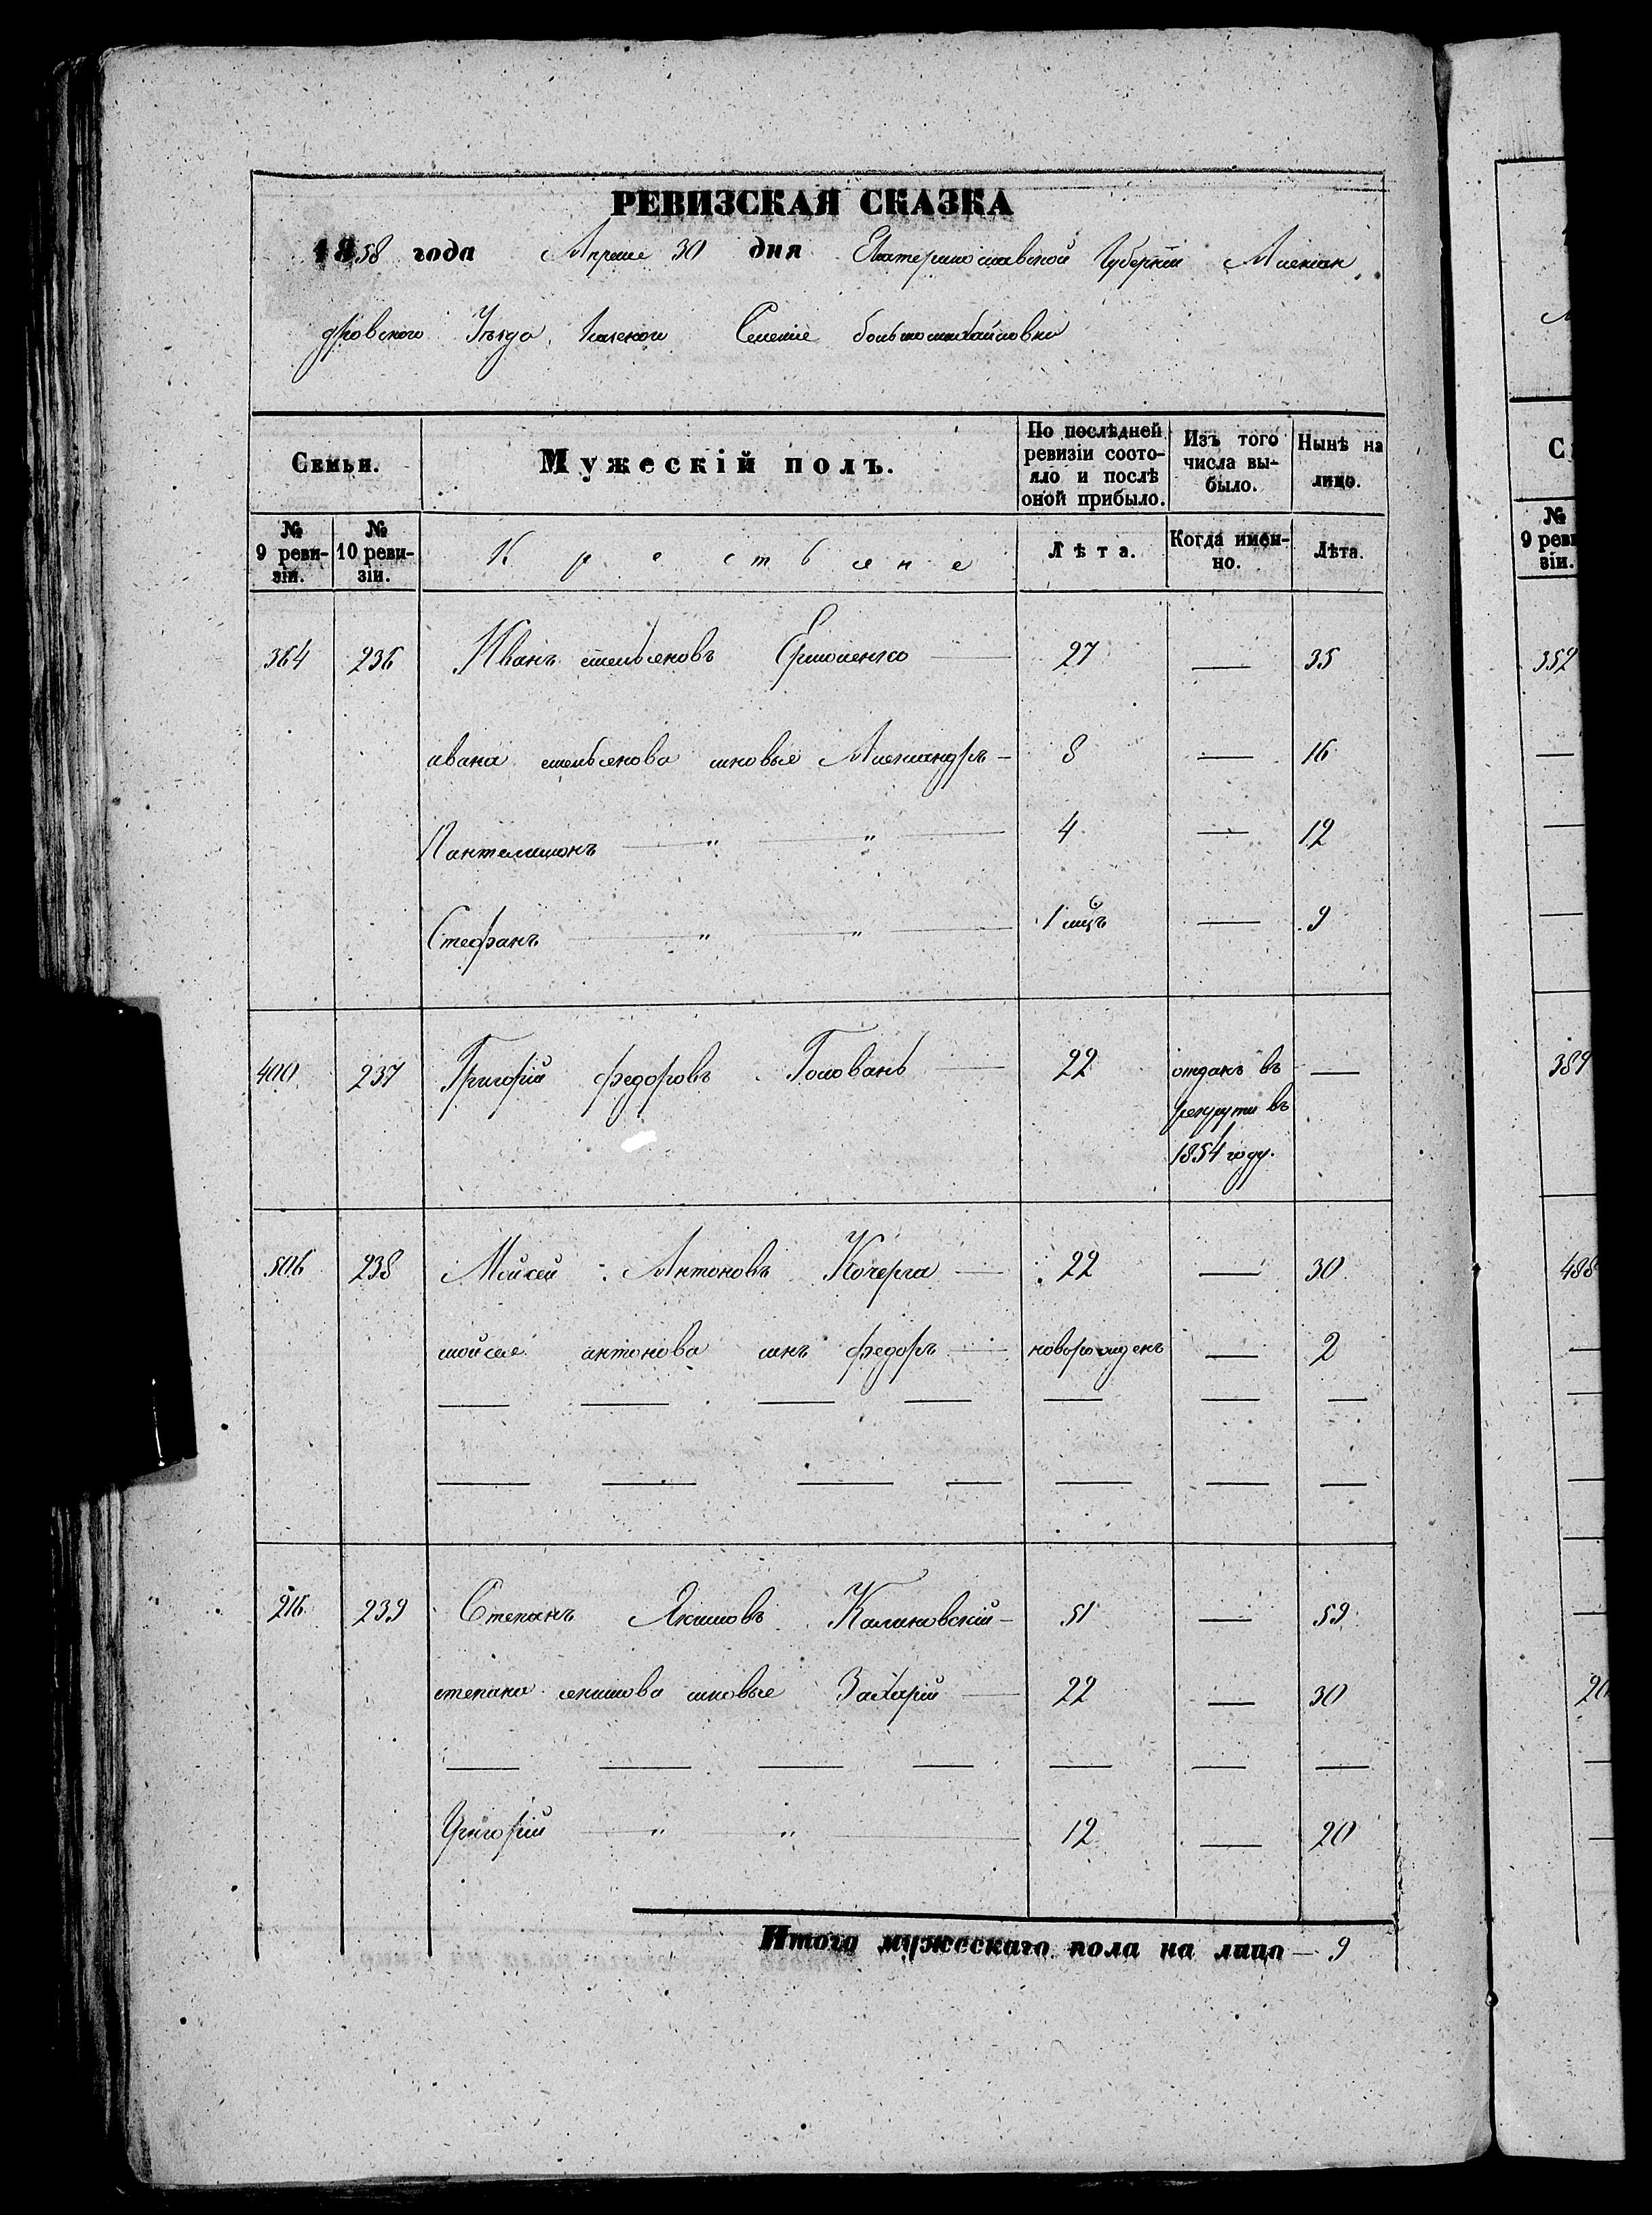 РЕВИЗСКАЯ СКАЗКА
1858 года Апреля 30 дня Екатеринославской Губерніи Алексан
дровскаго Уѣзда Селенія большемихайловки
Семьи. Мужескій полъ. По послѣдней ревизіи состо- яло и послѣ оной прибыло. Изъ того числа вы- было. Нынѣ на лицо.
№ 9 реви- зіи. № 10 реви- зіи. Крестьяне Лѣта. Когда имен- но. Лѣта.
364 236 Иванъ емельяновъ Ермоленко — 27 — 35
ивана емельянова сыновья Александръ — 8 — 16
Пантелимонъ — " — " — 4 — 12
Стефанъ — " — " — 1 мцъ — 9
400 237 Григорій федоровъ Головань — 22 отданъ въ —
рекруты въ
1854 году.
506 238 Мойсей Антоновъ Кочерга — 22 — 30
мойсея антонова сынъ федоръ — новорожденъ — 2
— — — — — — —
— — — — — — —
216 239 Степанъ Якимовъ Калиновскій — 51 — 59
степана якимова сыновья Захарій — 22 — 30
— — — — — — —
Григорій — " — " — 12 — 20
Итого мужескаго пола на лицо — 9
С
№
9 реви
зіи.
352
389
488
20